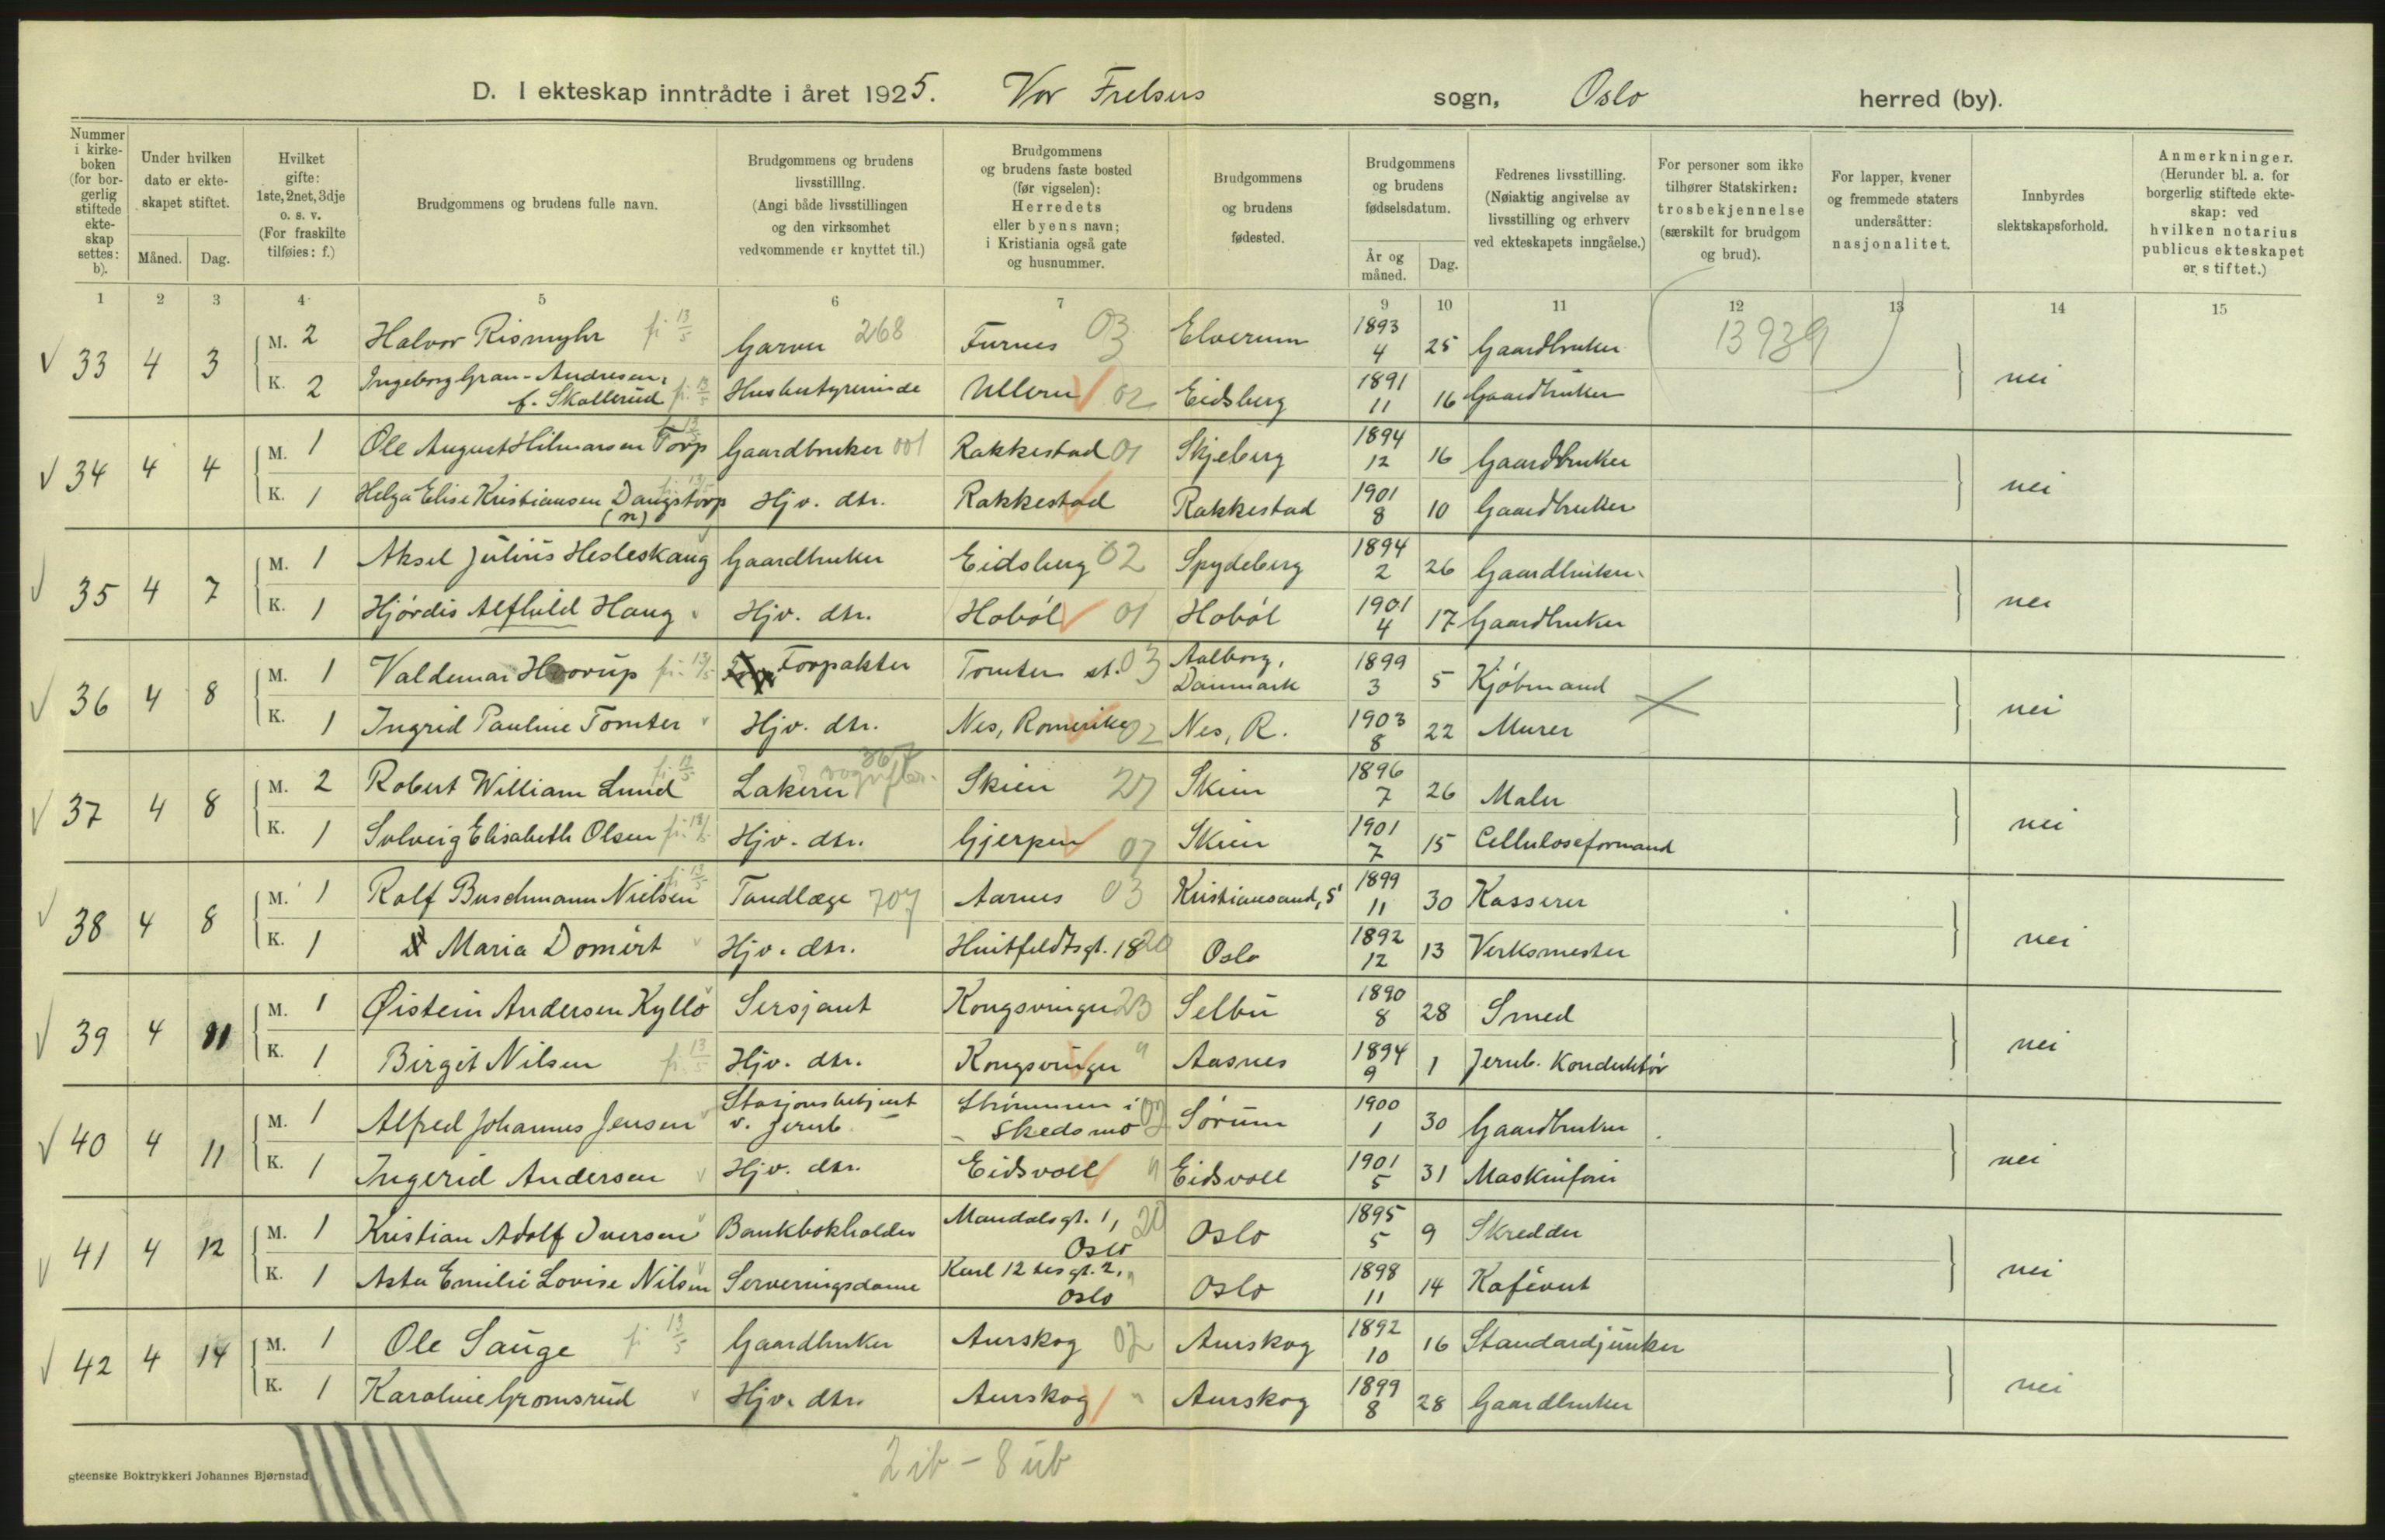 D. I ekteskap inntrådte i året 1925. Vor Frelsers sogn, Oslo herred (by).
Nummer i kirke-boken (for bor-gerlig stiftede ekte-skap settes: b).
Under hvilken dato er ekte-skapet stiftet.
Måned. Dag.
Hvilket gifte: 1ste, 2net, 3dje o. s. v. (For fraskilte tilføies: f.)
Brudgommens og brudens fulle navn.
Brudgommens og brudens livsstilling. (Angi både livsstillingen og den virksomhet vedkommende er knyttet til.)
Brudgommens og brudens faste bosted (før vigselen): Herredets eller byens navn; i Kristiania også gate og husnummer.
Brudgommens og brudens fødested.
Brudgommens og brudens fødselsdatum.
År og måned. Dag.
Fedrenes livsstilling. (Nøiaktig angivelse av livsstilling og erhverv ved ekteskapets inngåelse.)
For personer som ikke tilhører Statskirken: trosbekjennelse (særskilt for brudgom og brud).
For lapper, kvener og fremmede staters undersåtter: nasjonalitet.
Innbyrdes slektskapsforhold.
Anmerkninger. (Herunder bl. a. for borgerlig stiftede ekte-skap: ved hvilken notarius publicus ekteskapet er stiftet.)
1 2 3 4 5 6 7 8 9 10 11 12 13 14 15
33 4 3 M. 2 Halvor Rismyhr Garver 268 Furnes 03 Elverum 1893 4 25 Gaardbruker 13939
K. 2 Ingeborg Gran-Andresen, f. Skallerud Husbestyrerinde Ullern 02 Eidsberg 1891 11 16 Gaardbruker nei
34 4 4 M. 1 Ole August Hilmarsen Torp Gaardbruker 001 Rakkestad 01 Skjeberg 1894 12 16 Gaardbruker
K. 1 Helga Elise Kristiansen Dangstorp (n) Hjv. dtr. Rakkestad Rakkestad 1901 8 10 Gaardbruker nei
35 4 7 M. 1 Aksel Julius Hesleskaug Gaardbruker Eidsberg 02 Spydeberg 1894 2 26 Gaardbruker
K. 1 Hjördis Alfhild Haug Hjv. dtr. Hobøl 01 Hobøl 1901 4 17 Gaardbruker nei
36 4 8 M. 1 Valdemar Hoorup Forpakter Tomter st. 03 Aalborg, Danmark 1899 3 5 Kjöbmand
K. 1 Ingrid Pauline Tomter Hjv. dtr. Nes, Romerike 02 Nes, R. 1903 8 22 Murer nei
37 4 8 M. 2 Robert William Lund Lakerer 367 Skien 27 Skien 1896 7 26 Maler
K. 1 Solveig Elisabeth Olsen Hjv. dtr. Gjerpen 07 Skien 1901 7 15 Celluloseformand nei
38 4 8 M. 1 Rolf Buschmann Nielsen Tandlæge 707 Aarnes 03 Kristiansand, S 1899 11 30 Kasserer
K. 1 Maria Domért Hjv. dtr. Huitfeldtsgt. 18 20 Oslo 1892 12 13 Verksmester nei
39 4 11 M. 1 Øistein Andersen Kyllö Sersjant Kongsvinger 23 Selbu 1890 8 28 Smed
K. 1 Birgit Nilsen Hjv. dtr. Kongsvinger " Aasnes 1894 9 1 Jernb. Konduktör nei
40 4 11 M. 1 Alfred Johannes Jensen Stasjonsbetjent v. Jernb. Strömmen i Skedsmo 02 Sörum 1900 1 30 Gaardbruker
K. 1 Ingerid Andersen Hjv. dtr. Eidsvoll " Eidsvoll 1901 5 31 Maskinfører nei
41 4 12 M. 1 Kristian Adolf Iversen Bankbokholder Mandalsgt. 1, Oslo 20 Oslo 1895 5 9 Skredder
K. 1 Asta Emilie Lovise Nilsen Serveringsdame Karl 12tes gt. 2, Oslo " Oslo 1898 11 14 Kafévert nei
42 4 14 M. 1 Ole Sauge Gaardbruker Aurskog 02 Aurskog 1892 10 16 Standardjunker
K. 1 Karoline Gromsrud Hjv. dtr. Aurskog " Aurskog 1899 8 28 Gaardbruker nei
2 ib - 8 ub
Steenske Boktrykkeri Johannes Bjørnstad